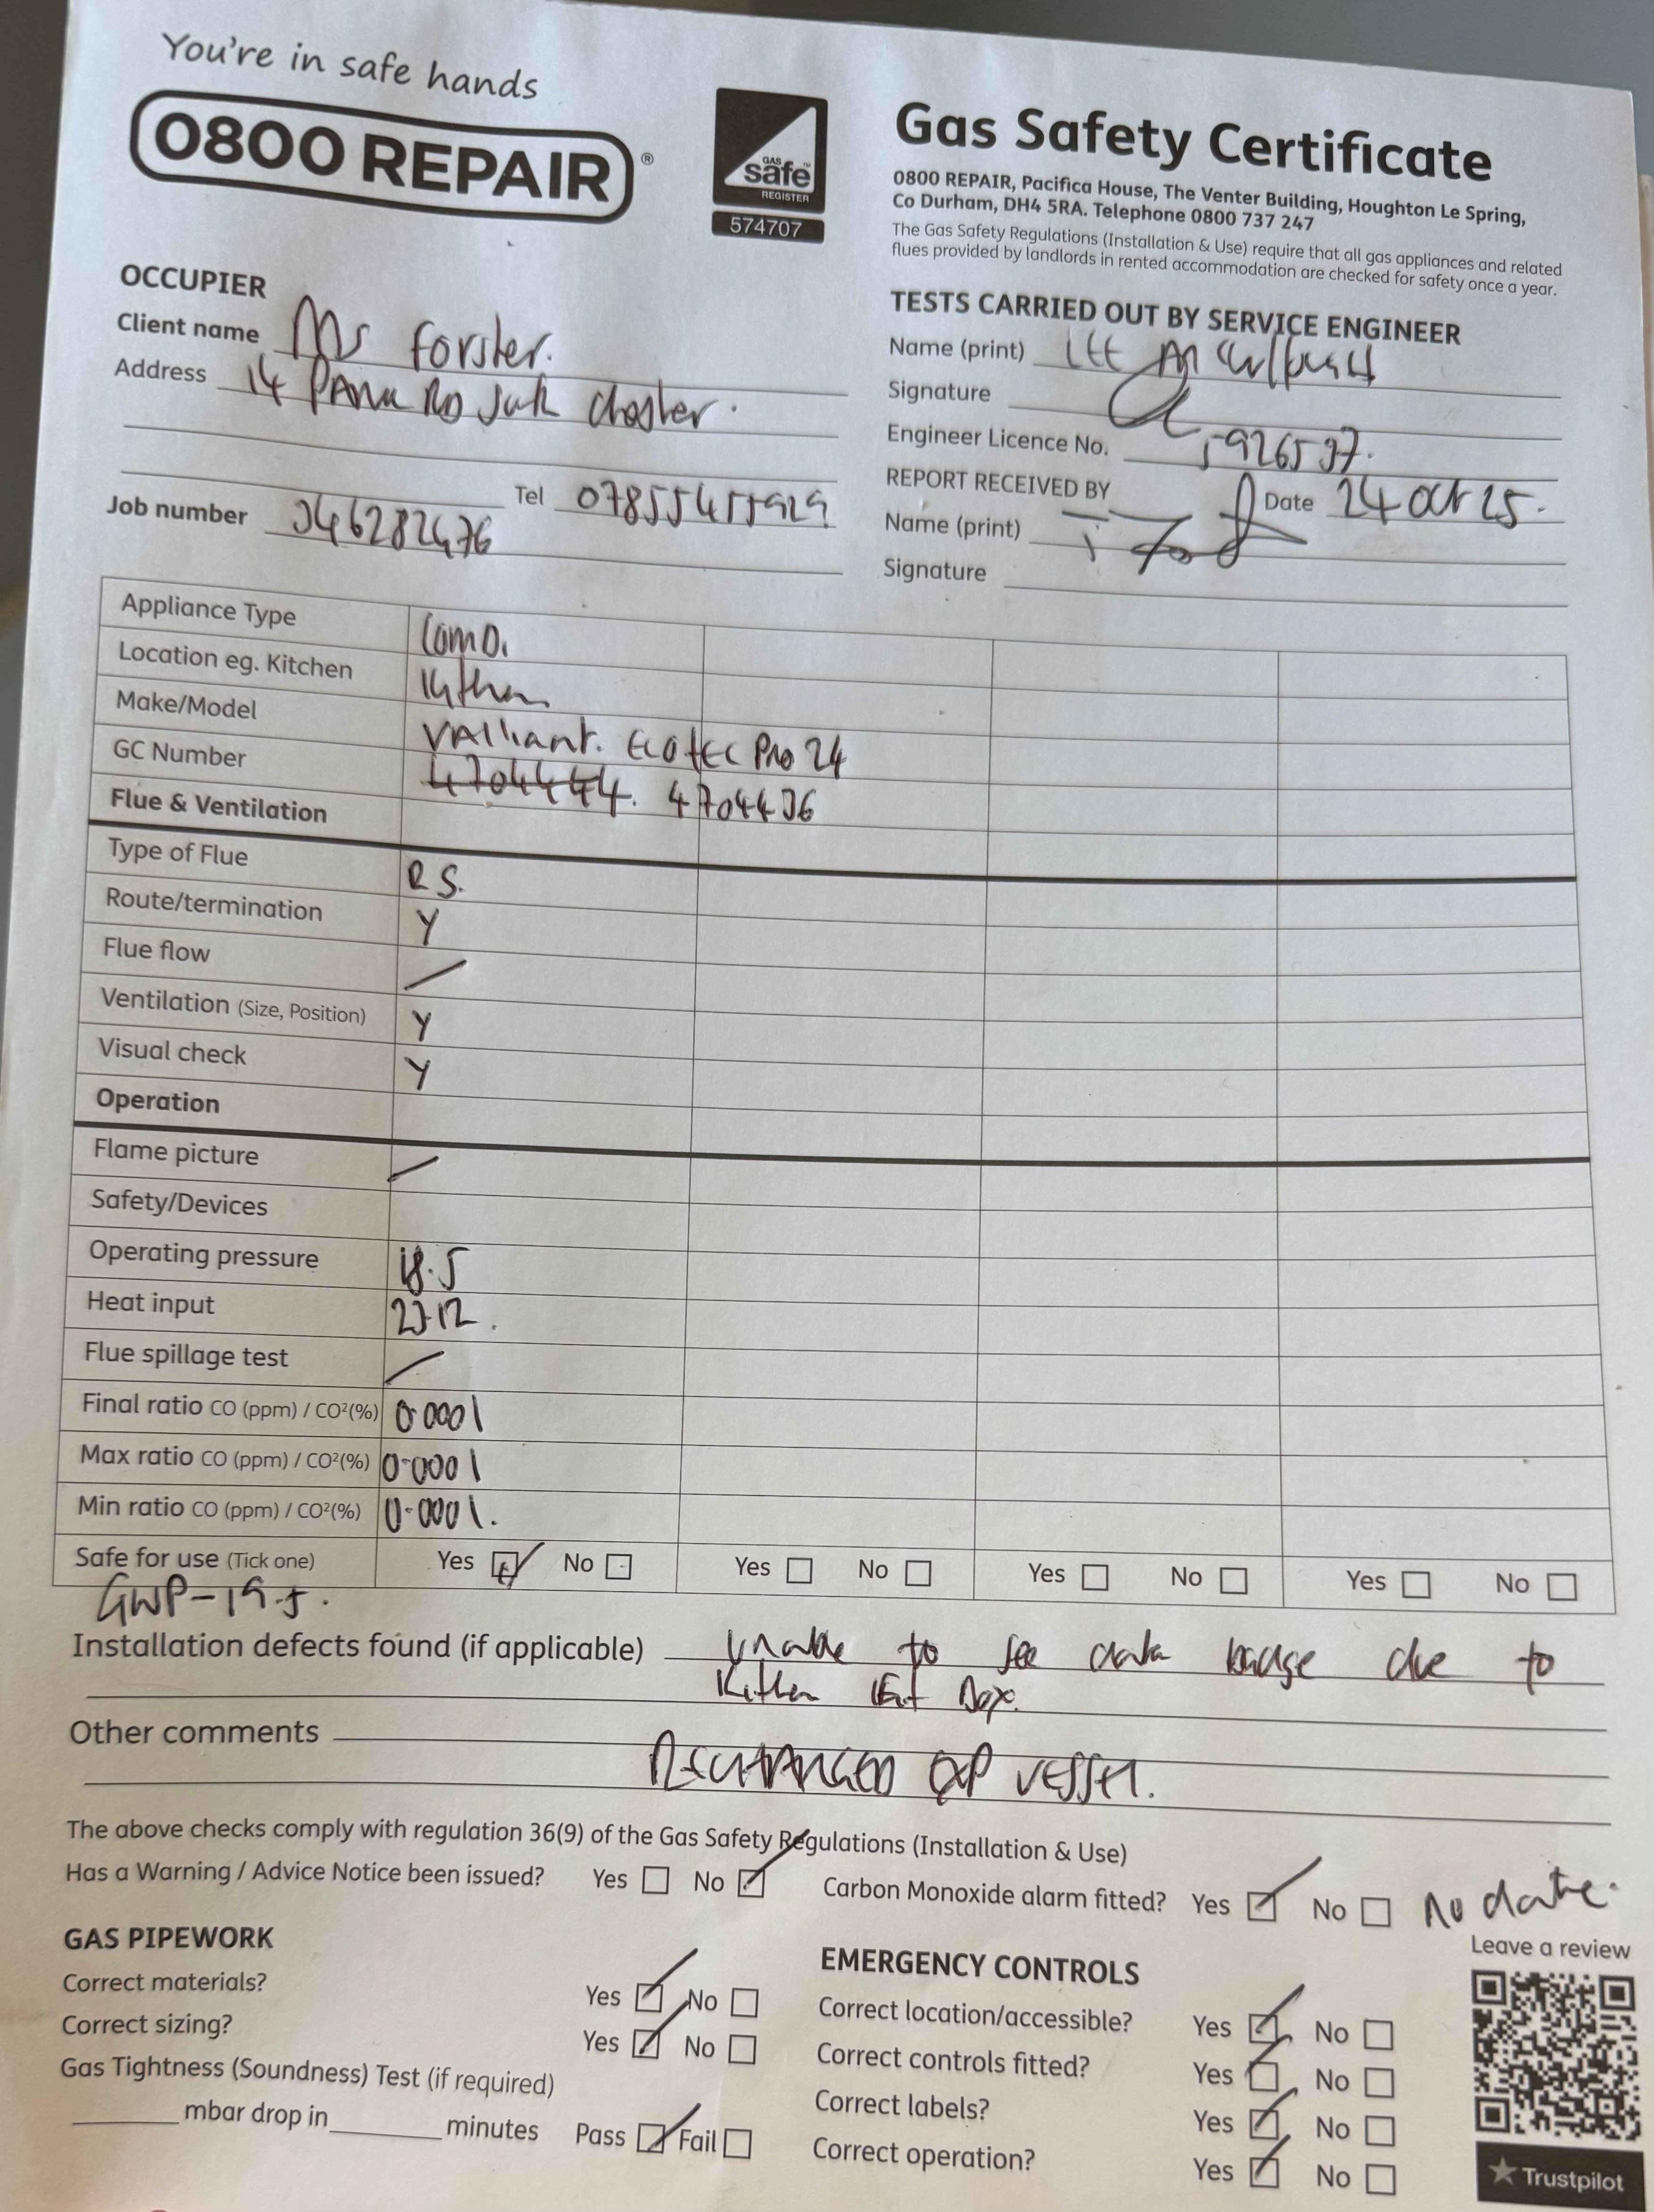 You're in safe hands
0800 REPAIR®
GAS safe™ REGISTER
574707
Gas Safety Certificate
0800 REPAIR, Pacifica House, The Venter Building, Houghton Le Spring,
Co Durham, DH4 5RA. Telephone 0800 737 247
The Gas Safety Regulations (Installation & Use) require that all gas appliances and related
flues provided by landlords in rented accommodation are checked for safety once a year.
OCCUPIER
Client name Ms Forster.
Address 14 Rd Chester.
Tel
Job number
TESTS CARRIED OUT BY SERVICE ENGINEER
Name (print) LEE
Signature
Engineer Licence No.
REPORT RECEIVED BY
Date 24 Oct 25.
Name (print)
Signature
Appliance Type
Location eg. Kitchen Kitchen
Make/Model Valliant. EcoTEC Pro 24
GC Number 4704444. 4704436
Flue & Ventilation
Type of Flue RS.
Route/termination Y
Flue flow /
Ventilation (Size, Position) Y
Visual check Y
Operation
Flame picture /
Safety/Devices
Operating pressure 18.5
Heat input
Flue spillage test /
Final ratio CO (ppm) / CO²(%) 0.0001
Max ratio CO (ppm) / CO²(%) 0.0001
Min ratio CO (ppm) / CO²(%) 0.0001.
Safe for use (Tick one) Yes No Yes No Yes No Yes No
GWP-19.5.
Installation defects found (if applicable) unable to see data badge due to
Kitchen
Other comments
RECHARGED EXP VESSEL.
The above checks comply with regulation 36(9) of the Gas Safety Regulations (Installation & Use)
Has a Warning / Advice Notice been issued? Yes No
Carbon Monoxide alarm fitted? Yes No No date.
GAS PIPEWORK
Correct materials? Yes No
Correct sizing? Yes No
Gas Tightness (Soundness) Test (if required)
mbar drop in minutes Pass Fail
EMERGENCY CONTROLS
Correct location/accessible? Yes No
Correct controls fitted? Yes No
Correct labels? Yes No
Correct operation? Yes No
Leave a review
Trustpilot